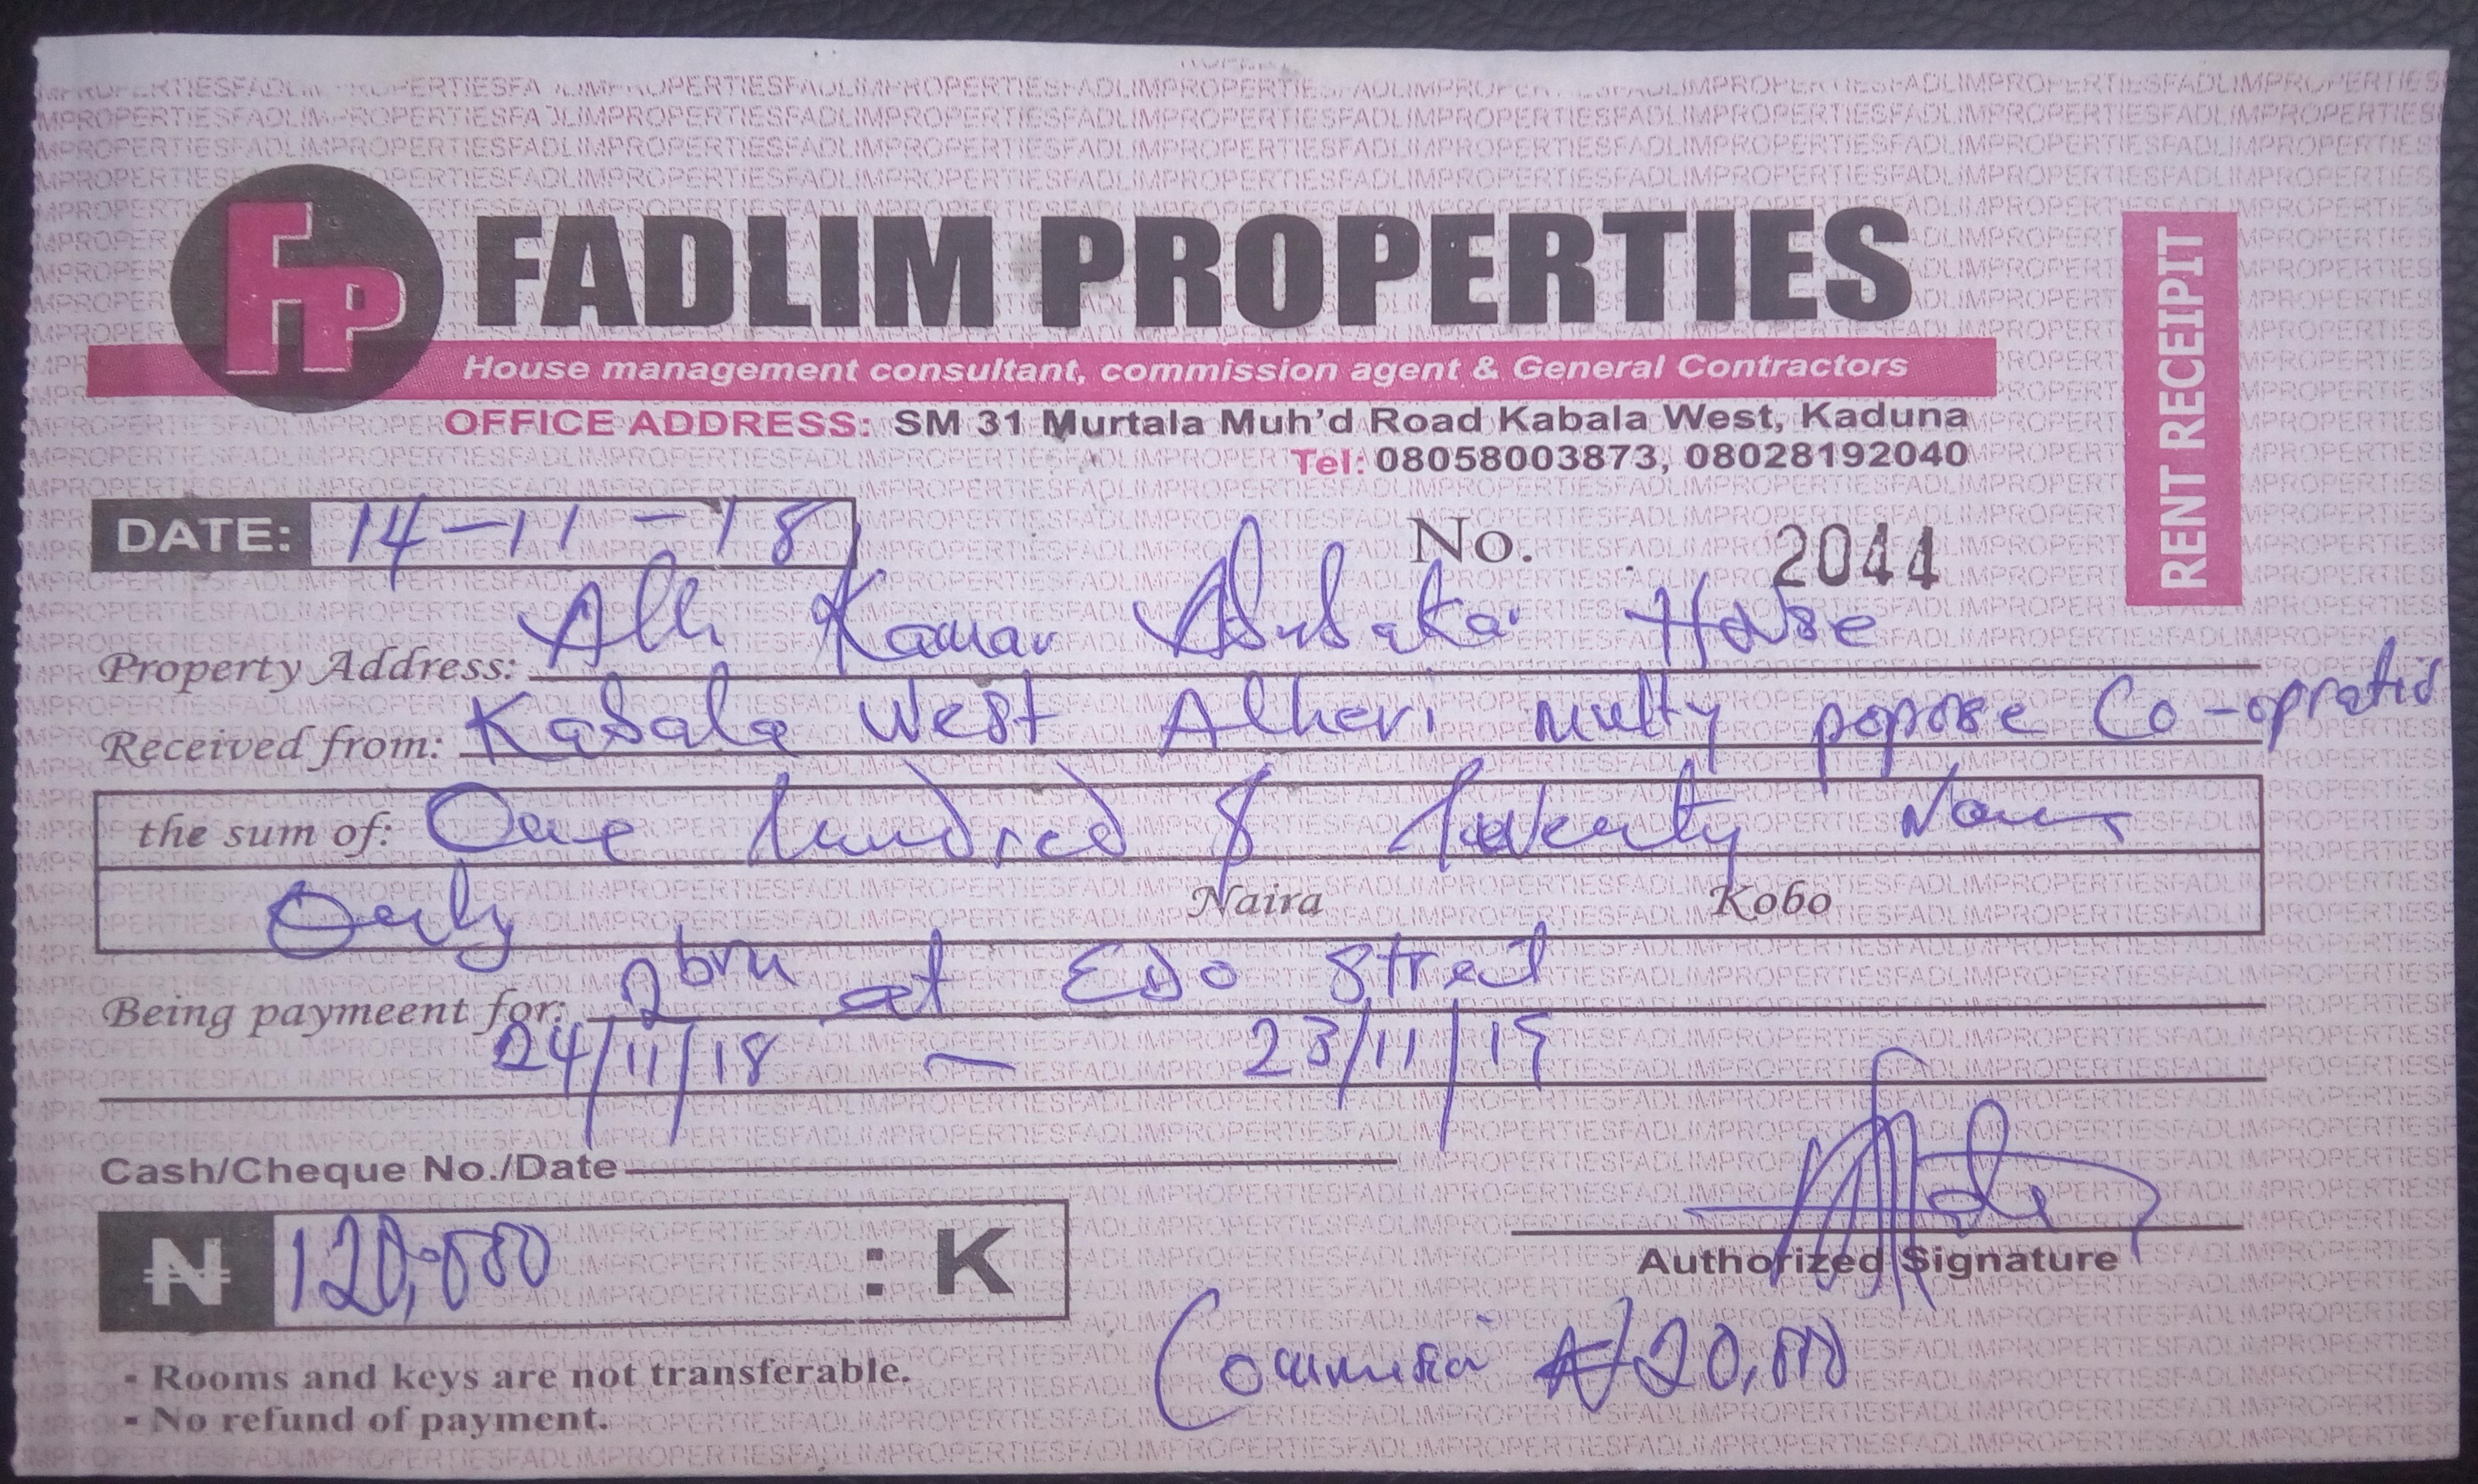 FADLIM PROPERTIES
House management consultant, commission agent & General Contractors
OFFICE ADDRESS: SM 31 Murtala Muh'd Road Kabala West, Kaduna
Tel: 08058003873, 08028192040
RENT RECEIPIT
DATE: 14-11-18
No. 2044
Property Address: Alh Abubakar House
Received from: Kabala West Alheri multy popose Co-opratio
the sum of: One hundred & twenty
Only Naira Kobo
Being paymeent for: 2brm at Edo Street
24/11/18 - 23/11/19
Cash/Cheque No./Date
₦ 120,000 : K
Authorized Signature
- Rooms and keys are not transferable.
- No refund of payment.
₦20,000